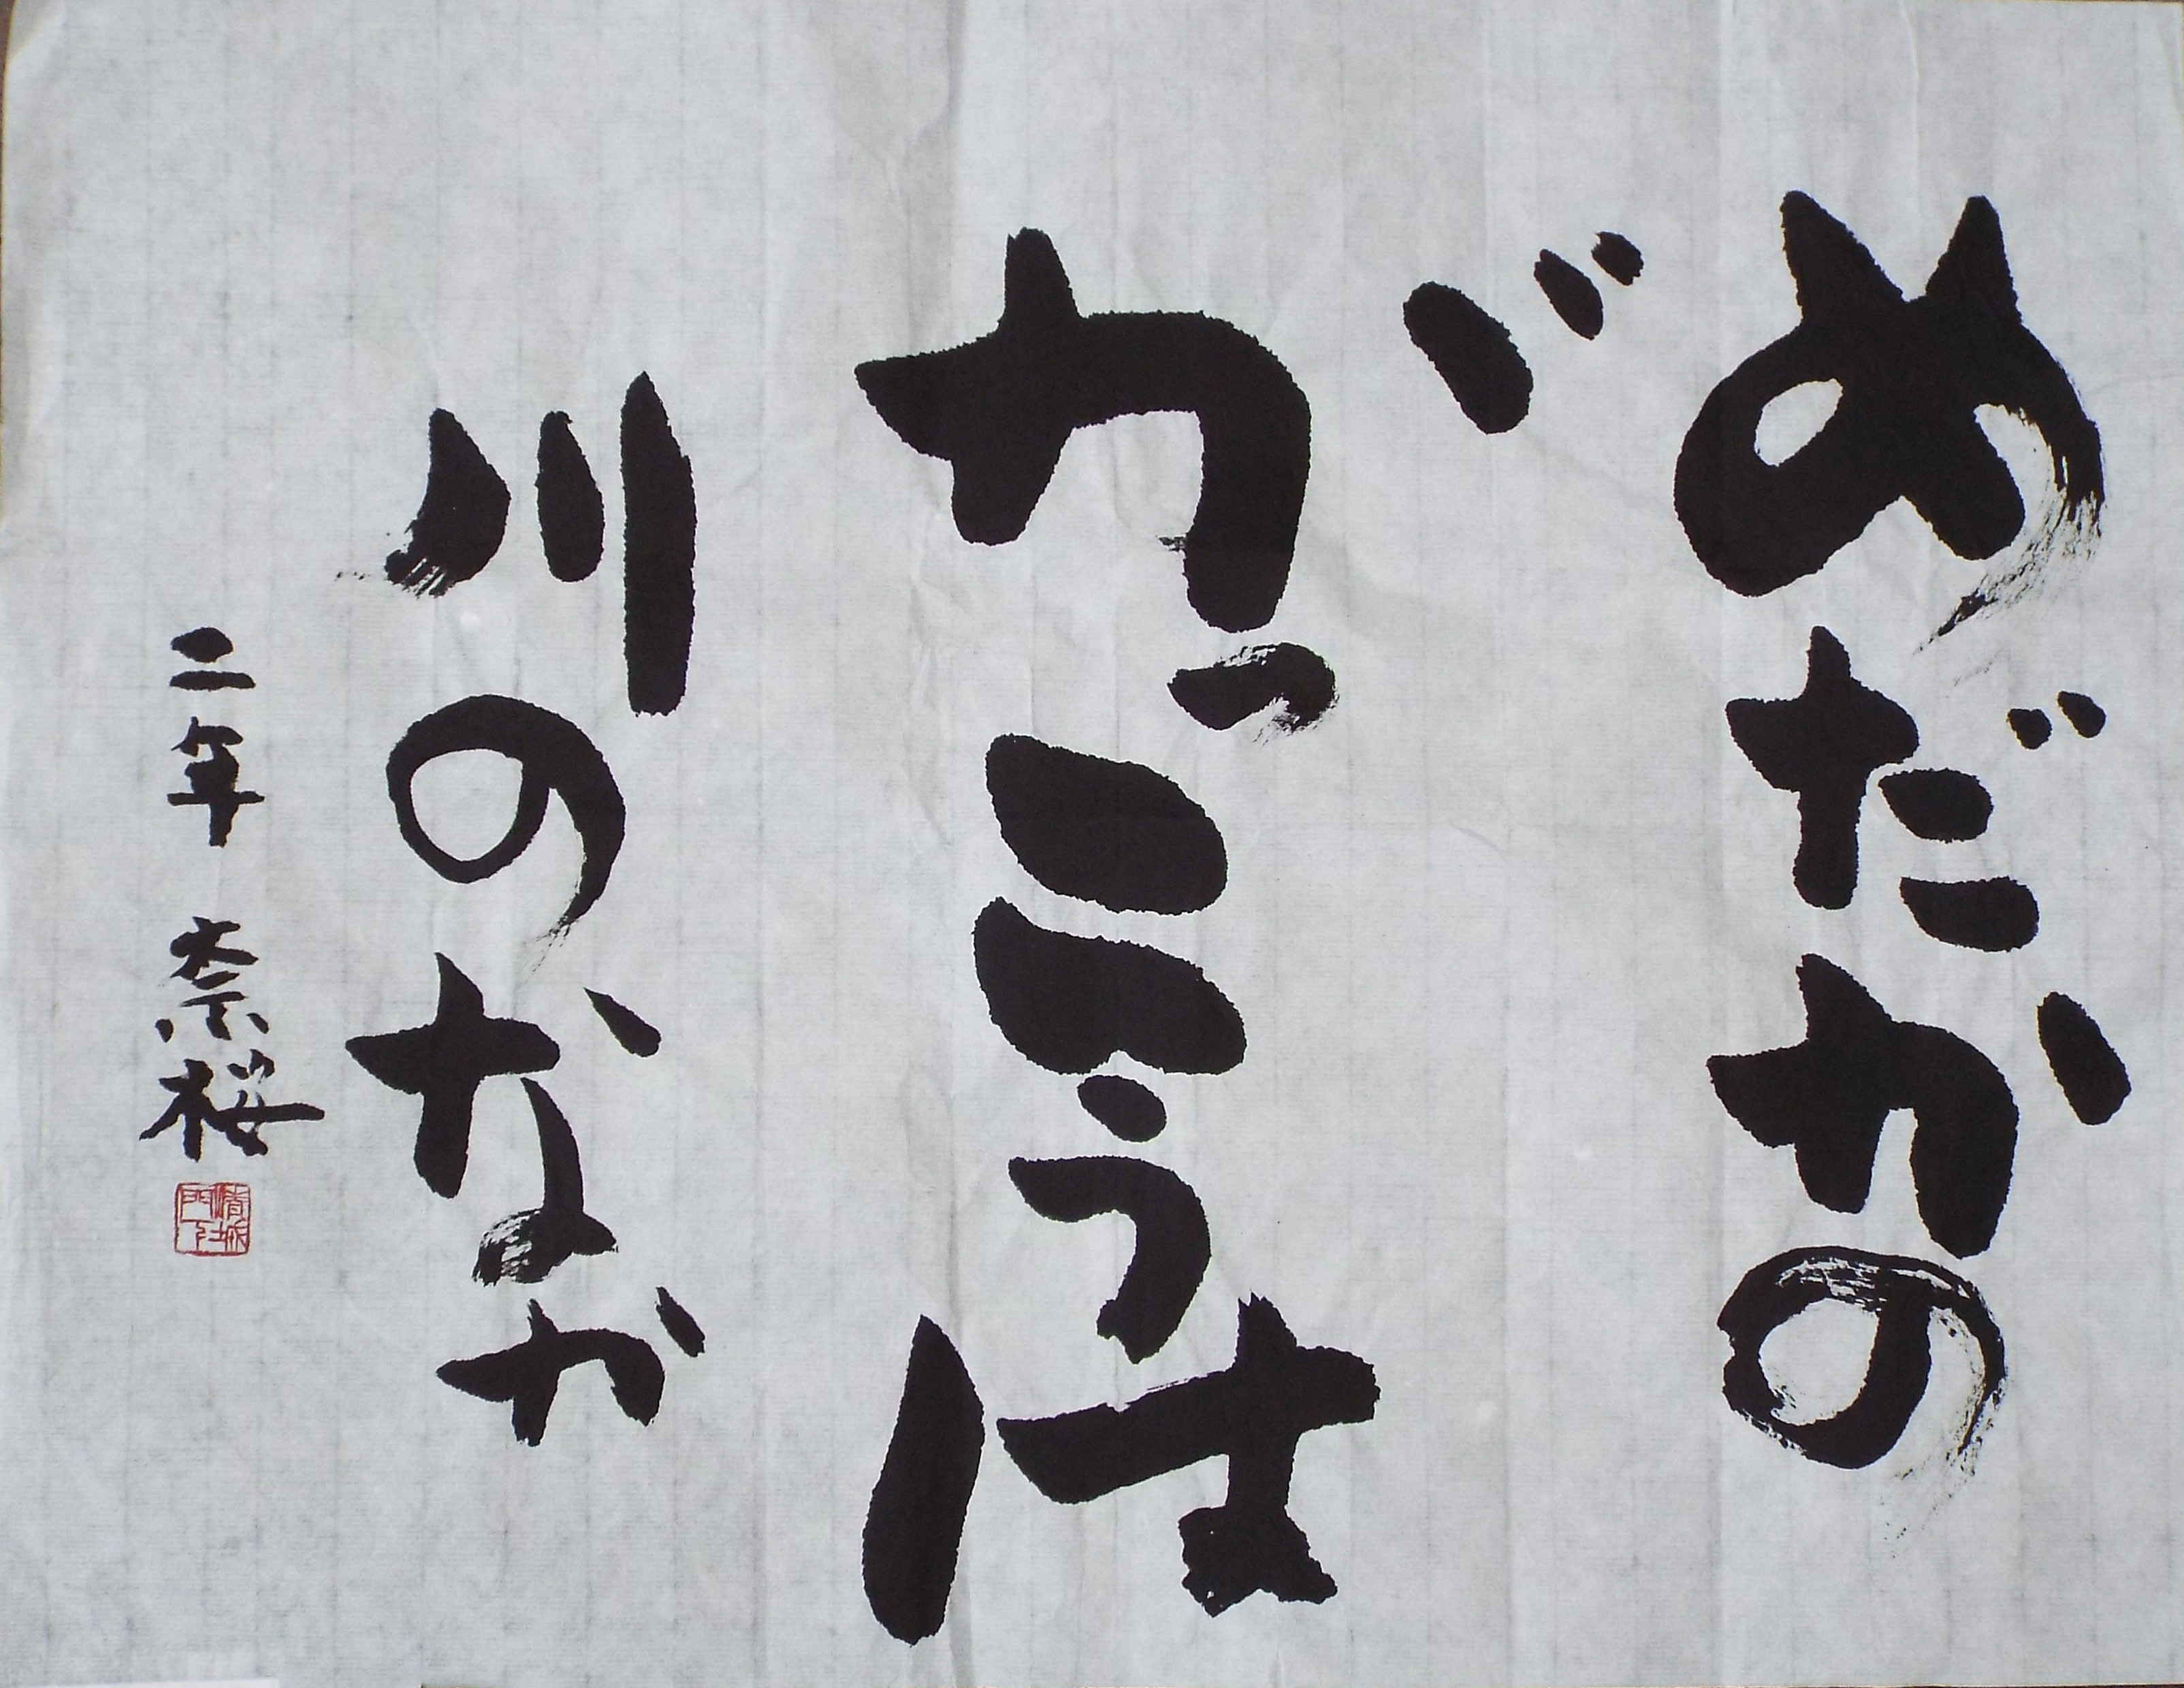 めだかの
がっこうは
川のなか
二年 奈桜